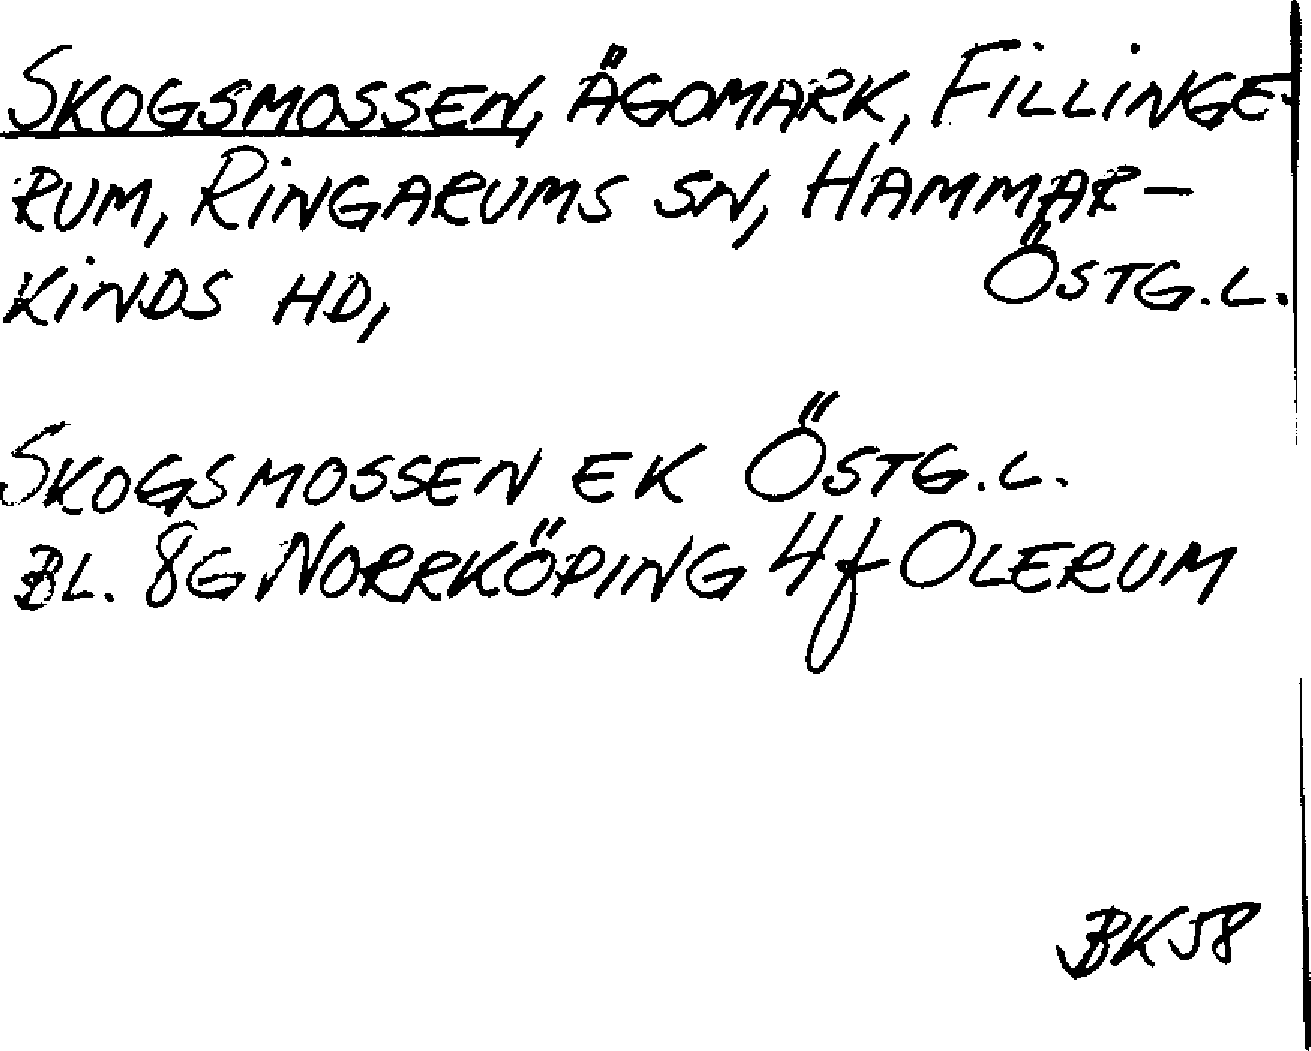 SKOGSMOSSEN, ÄGOMARK, FILLINGE-
RUM, RINGARUMS SN, HAMMAR-
KINDS HD, ÖSTG.L.
SKOGSMOSSEN EK ÖSTG.L.
BL. 8G NORRKÖPING 4f OLERUM
BK58